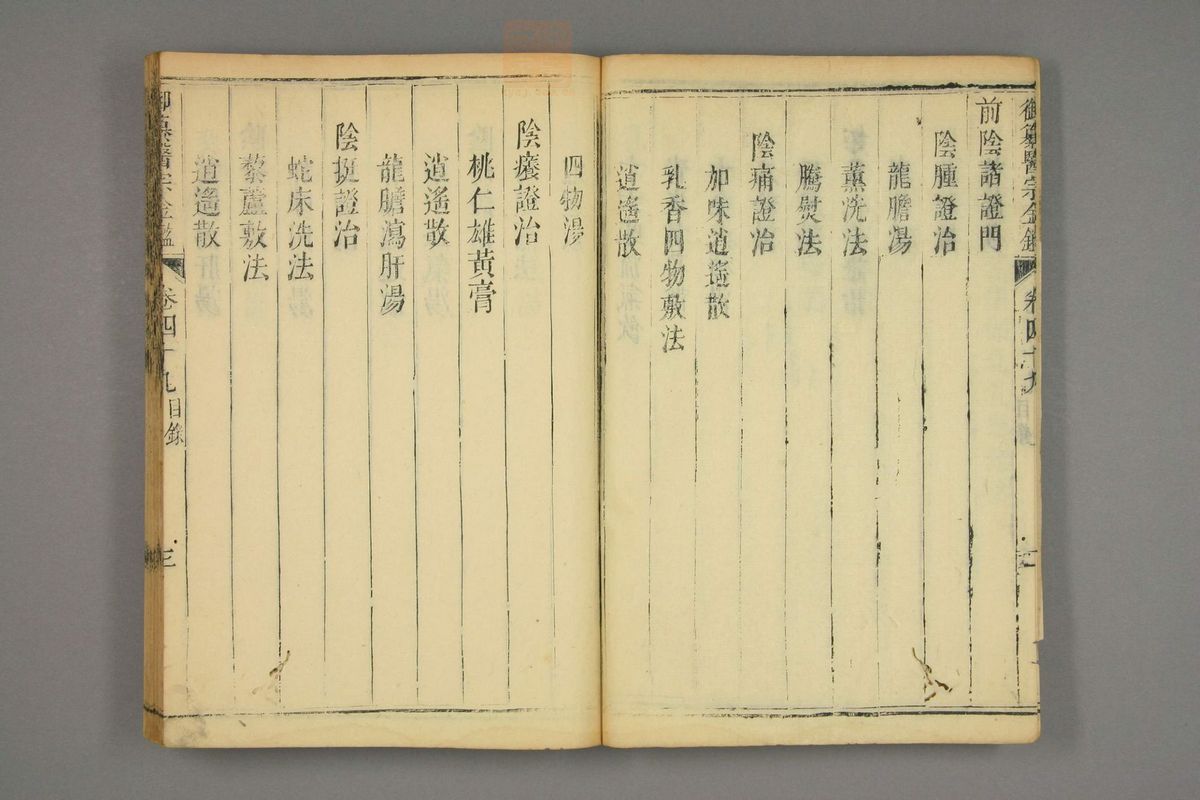 御纂醫宗金鑑 卷四十九 目錄
前陰諸證門
陰腫證治
龍膽湯
薰洗法
騰熨法
陰痛證治
加味逍遙散
乳香四物敷法
逍遙散
四物湯
陰癢證治
桃仁雄黃膏
逍遙散
龍膽瀉肝湯
陰挺證治
蛇床洗法
藜蘆敷法
逍遙散
御纂醫宗金鑑 卷四十九 目錄 三